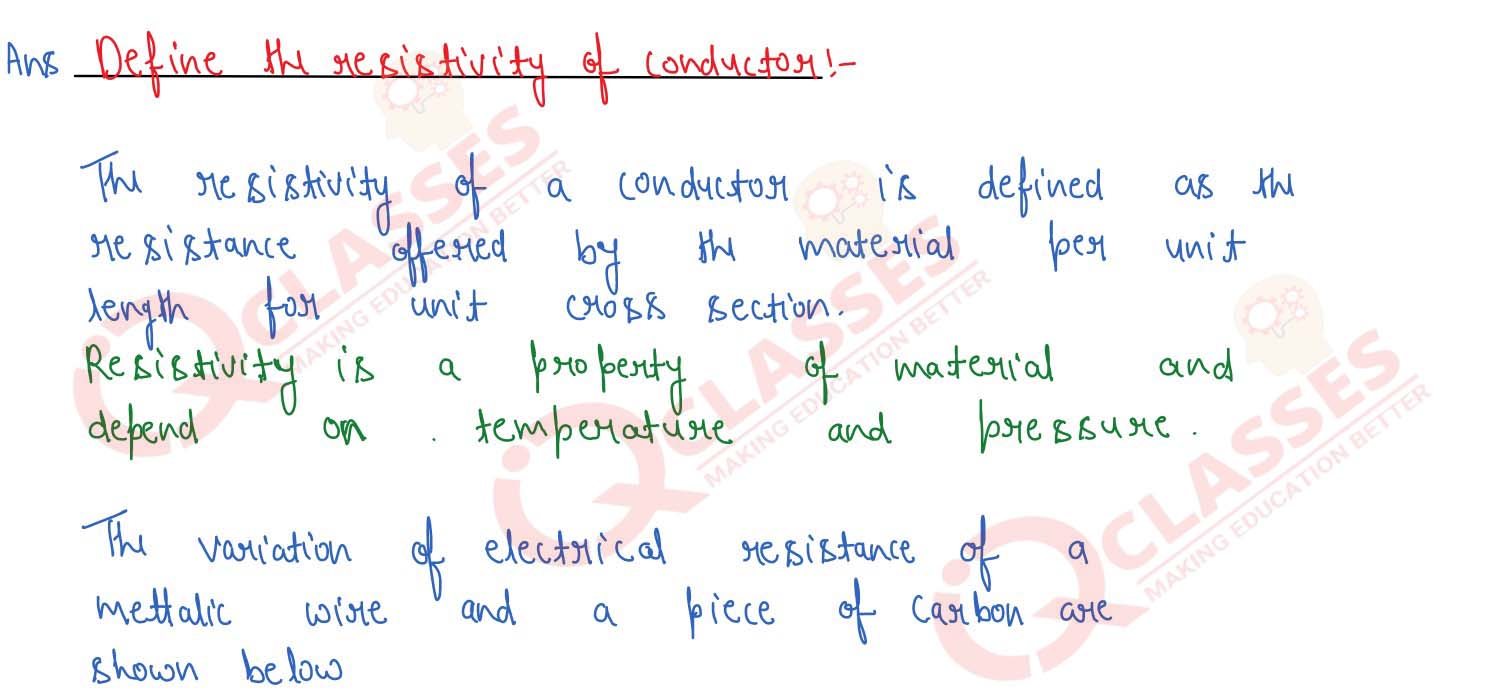 Ans Define the resistivity of conductor:-
The resistivity of a conductor is defined as the
resistance offered by the material per unit
length for unit cross section.
Resistivity is a property of material and
depend on . temperature and pressure.
The variation of electrical resistance of a
mettalic wire and a piece of carbon are
shown below
iQ CLASSES
MAKING EDUCATION BETTER
iQ CLASSES
MAKING EDUCATION BETTER
iQ CLASSES
MAKING EDUCATION BETTER